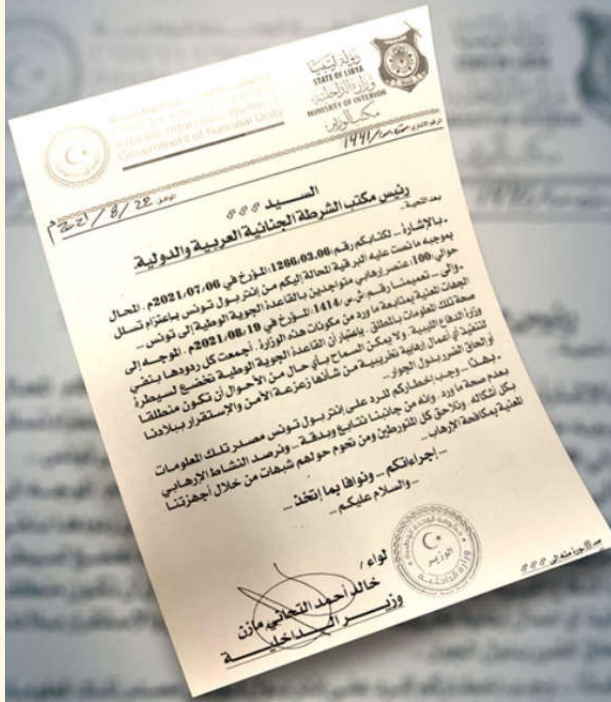 دولة ليبيا
STATE OF LIBYA
وزارة الداخلية
MINISTRY OF INTERIOR
مكتب الوزير
Government of National Unity
السيد
رئيس مكتب الشرطة الجنائية العربية والدولية.
بعد التحية ..
ـ بالإشارة .. لكتابكم رقم 1266/03.06 المؤرخ في 2021/07/06م . المحال
بموجبه ما نصت عليه البرقية المحالة إليكم من إنتربول تونس باعتزام تسلل
حوالي 100: عنصر إرهابي متواجدين بالقاعدة الجوية الوطية إلى تونس ..
ـ وإلى .. تعميمنا رقم 1414 المؤرخ في 2021/08/19م . الموجه إلى
الجهات المعنية بمتابعة ما ورد من مكونات هذه الوزارة. أجمعت كل ردودها بنفي
صحة تلك المعلومات بالمطلق . باعتبار أن القاعدة الجوية الوطية تخضع لسيطرة
وزارة الدفاع الليبية ولا يمكن السماح بأي حال من الأحوال أن تكون منطلقا
لتنفيذ أي أعمال إرهابية تخريبية من شأنها زعزعة الأمن والإستقرار ببلادنا
أو إلحاق الضرر بدول الجوار ..
ـ بهذا .. وجب إخطاركم للرد على إنتربول تونس مصدر تلك المعلومات
بعدم صحة ما ورد. وأنه من جانبنا نتابع وبدقة .. ونرصد النشاط الإرهابي
بكل أشكاله. ونلاحق كل المتورطين ومن تحوم حولهم شبهات من خلال أجهزتنا
المعنية بمكافحة الإرهاب ..
.. إجراءاتكم .. ونوافا بما إتخذ ..
.. والسلام عليكم ..
لواء /
خالد أحمد التجاني مازن
وزير الداخلية